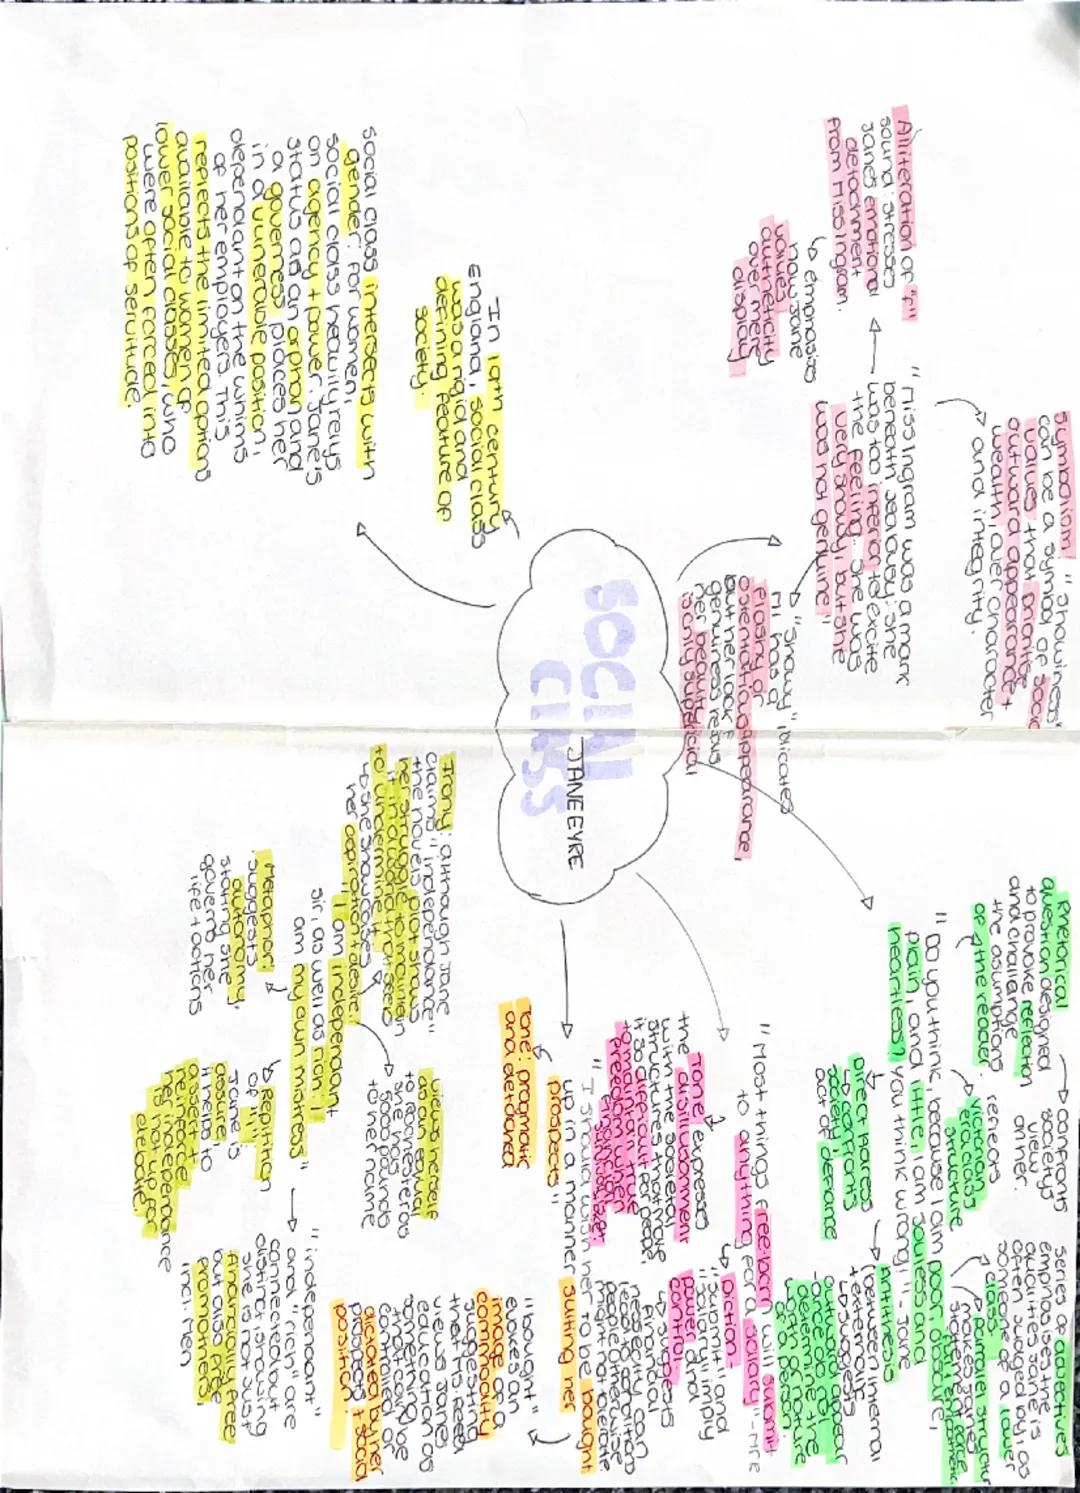 SOCIAL
CLASS
JANE EYRE
Symbolism: "showiness"
can be a symbol of
values that prioritise
outward appearance +
wealth, over character
and integrity.
Alliteration of "f"
sound: stresses
Janes emotional
detachment
from Miss Ingram.
↳ emphasises
how Jane
values
authenticity
over mere
display
"Miss Ingram was a mark
beneath jealousy: she
was too inferior to excite
the feeling... she was
very showy, but she
was not genuine"
"showy"
MI has a
flashy or
ostentatious appearance,
but her lack of
genuiness
her beauty is
In 19th century
England, social class
was a rigid and
defining feature of
society.
Social class intersects with
gender: for women,
social class heavily relys
on agency + power. Jane's
status as an orphan and
a governess places her
in a vunerable position,
dependant on the whims
of her employers. This
reflects the limited options
available to women of
lower social classes, who
were often forced into
positions of servitude.
Rhetorical
question designed
to provoke reflection
and challenge
the assumptions
of the reader.
→ confronts
societys
view
on her.
reflects
victorian
structure
series of adjectives
emphasises the
qualities Jane is
often judged by, as
someone of a lower
class.
parallel
"Do you think, because I am poor, obscure,
plain, and little, I am souless and
heartless? You think wrong!" - Jane
direct address
→ confronts
society,
act of defiance
Antithesis
between internal
+ external:
↳ suggests
outward appear
-ance do not
determine the
of a person.
"Most things free-born will submit
to anything for a salary" - Mr R
Tone expresses
the disillusionment
with the societal
structure that
diction:
"submit" and
"salary" imply
power and
control.
Financial
necessity can
lead to conditions
people otherwise
might not tolerate
"I should wish her to be bought
up in a manner suiting her
prospects"
Tone: pragmatic
and detached
"bought"
evokes an
image of a
commodity
suggesting
that Mrs. Reed
views Janes
education as
something
that could be
controlled or
dictated by her
position
Irony: although Jane
claims "independance"
the novels plot shows
her struggle to maintain
it in a world that seeks
to undermine it.
↳ she showcases
her aspiration + desire.
views herself
as an equal
to Rochester as
she has
5000 pounds
to her name
"I am independant
sir, as well as rich: I
am my own mistress"
Metaphor:
suggests
autonomy,
stating she
governs her
life + actions
Repitition
of "I":
Jane is
it helps to
assert +
reinforce
her independance
as not up for
debate.
"independant"
and "rich" are
connected but
distinct, showing
she is not just
financially free
but also free
from others,
incl. men